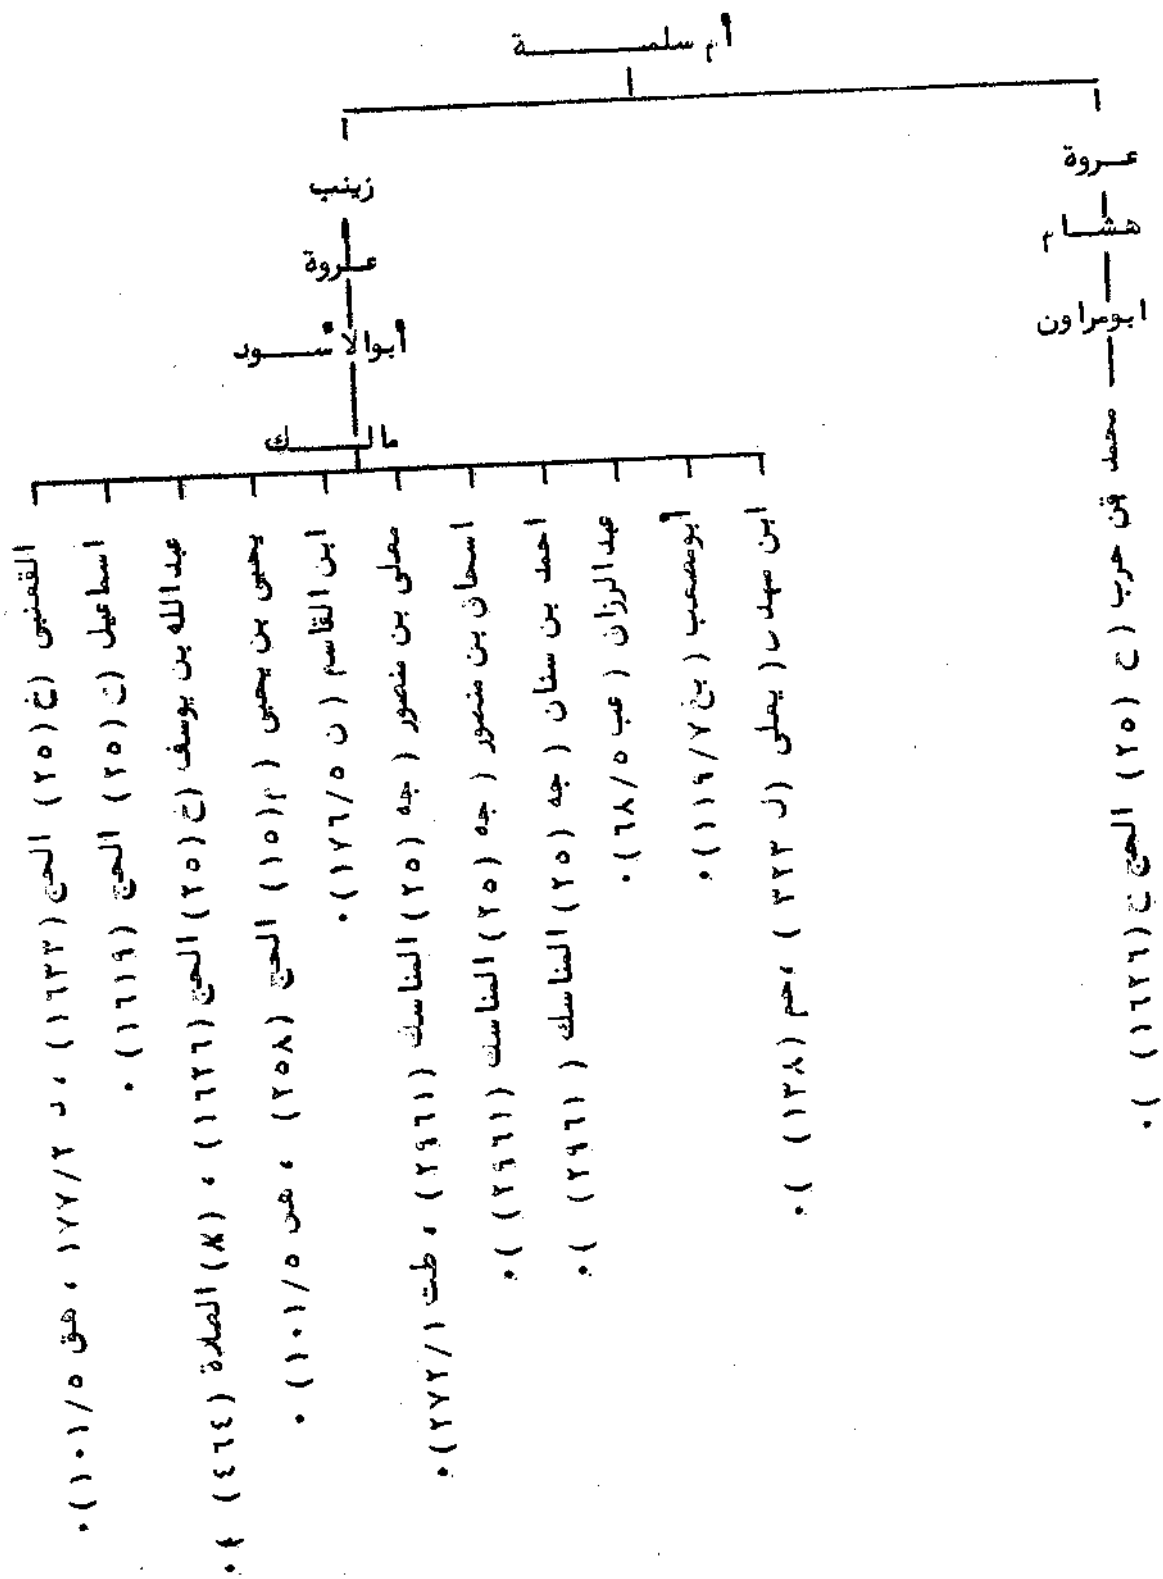 أم سلمــــــة
عـروة
هشــام
ابومراون
محمد بن حرب (خ (٢٥) الحج خ (١٦٢٦) ).
زينب
عـروة
أبوالأســود
مالــــك
ابن مهدى (يعلى (ل ٣٢٣) ،حم (١٣٨) ).
أبومصعب (بغ ١١٩/٧).
عبدالرزان (عب ٦٨/٥).
احمد بن سنان (جه (٢٥) المناسك (٢٩٦١) ).
اسحان بن منصور (جه (٢٥) المناسك (٢٩٦١) ).
معلى بن منصور (جه (٢٥) المناسك (٢٩٦١) ، طت ٢٧٢/١).
ابن القاسم (ن ١٧٦/٥).
يحيى بن يحيى (م (١٥) الحج (٢٥٨) ، هى ١٠١/٥).
عبدالله بن يوسف (خ (٢٥) الحج (١٦٢٦) ، (٨) الصلاة (٤٦٤) ).
اسماعيل (خ (٢٥) الحج (١٦١٩).
القعنبى (خ (٢٥) الحج (١٦٣٣) ، د ١٧٧/٢ ، هق ١٠١/٥).